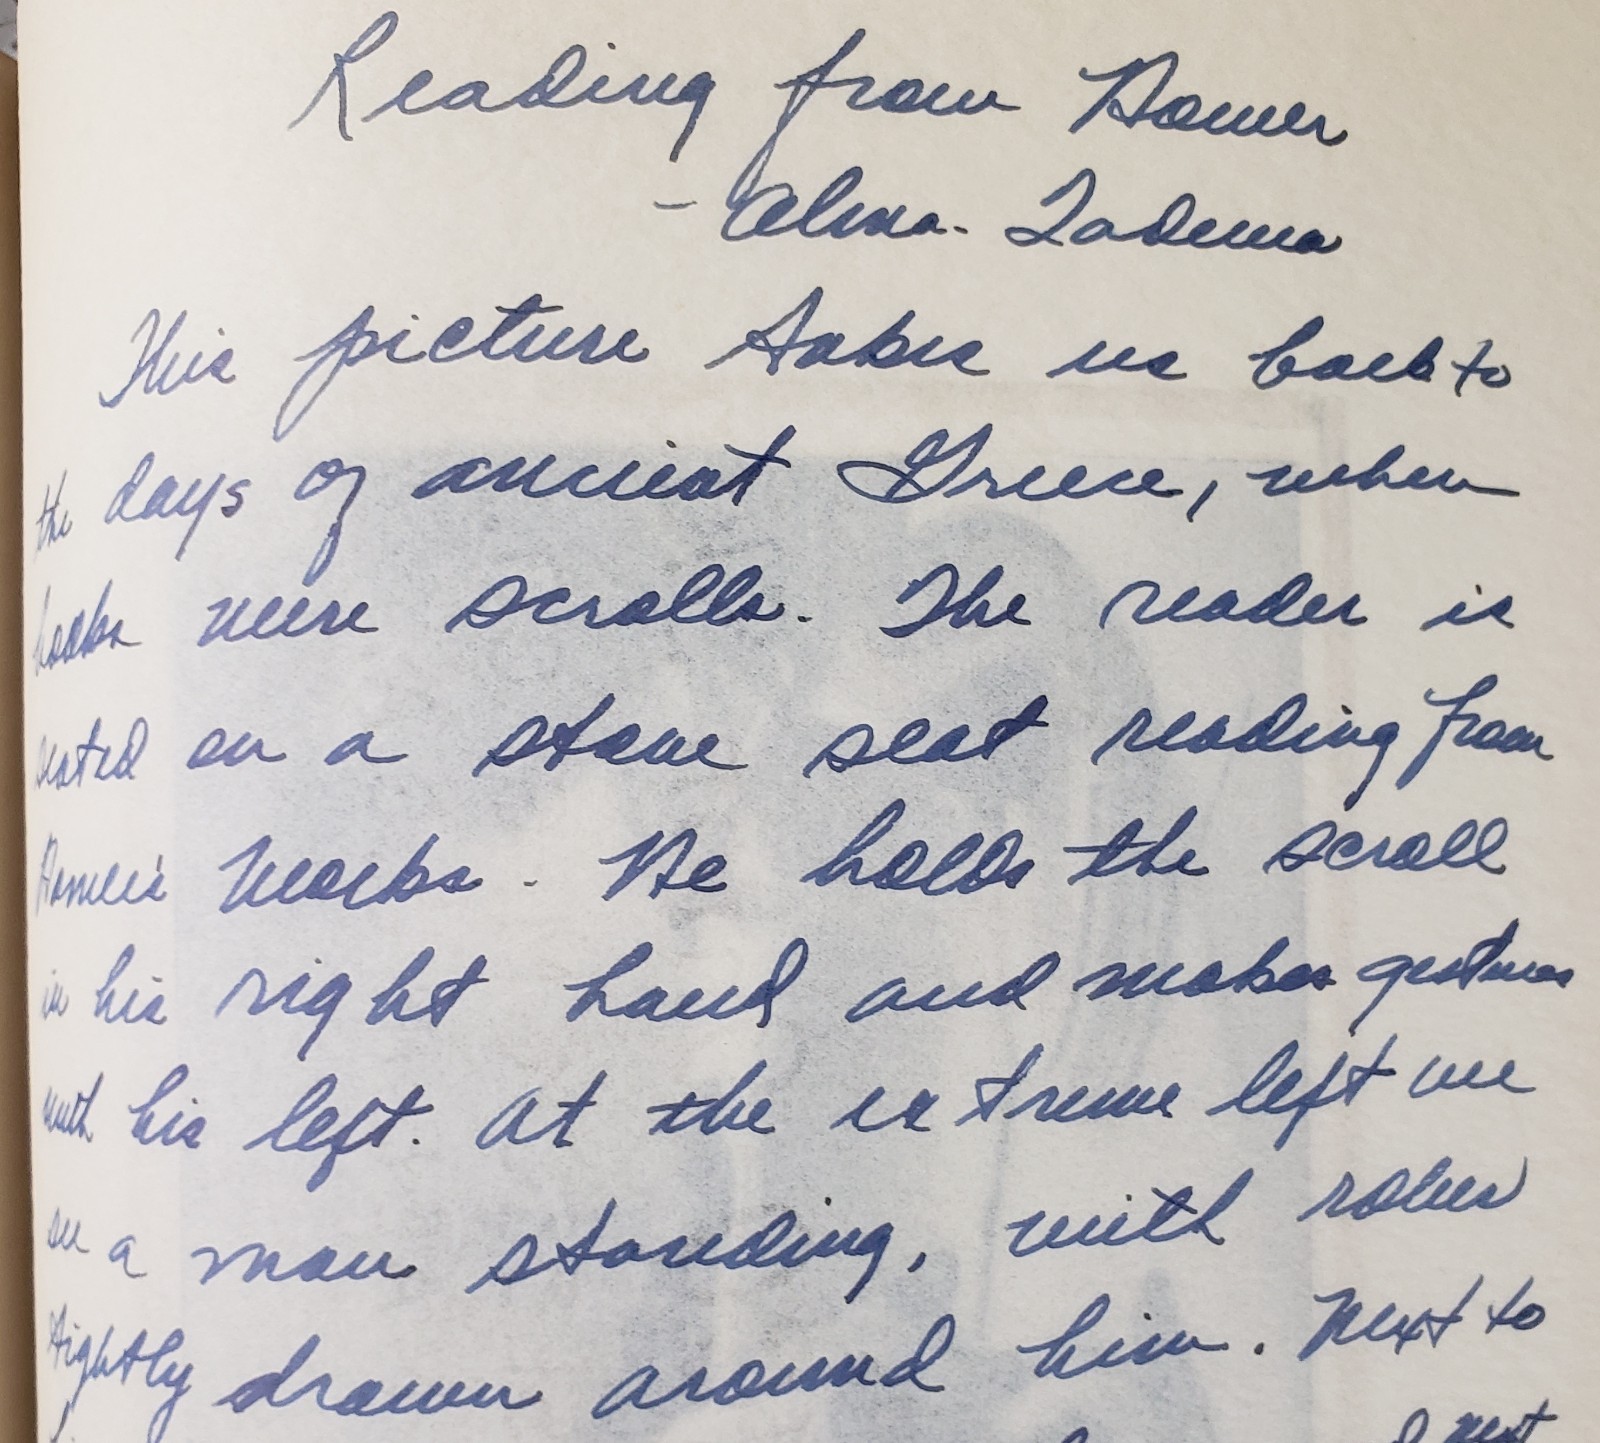 Reading from Homer
- Alma-Tadema
This picture takes us back to
the days of ancient Greece, when
books were scrolls. The reader is
seated on a stone seat reading from
Homer's works. He holds the scroll
in his right hand and makes gestures
with his left. At the extreme left we
see a man standing, with robes
tightly drawn around him. Next to
next